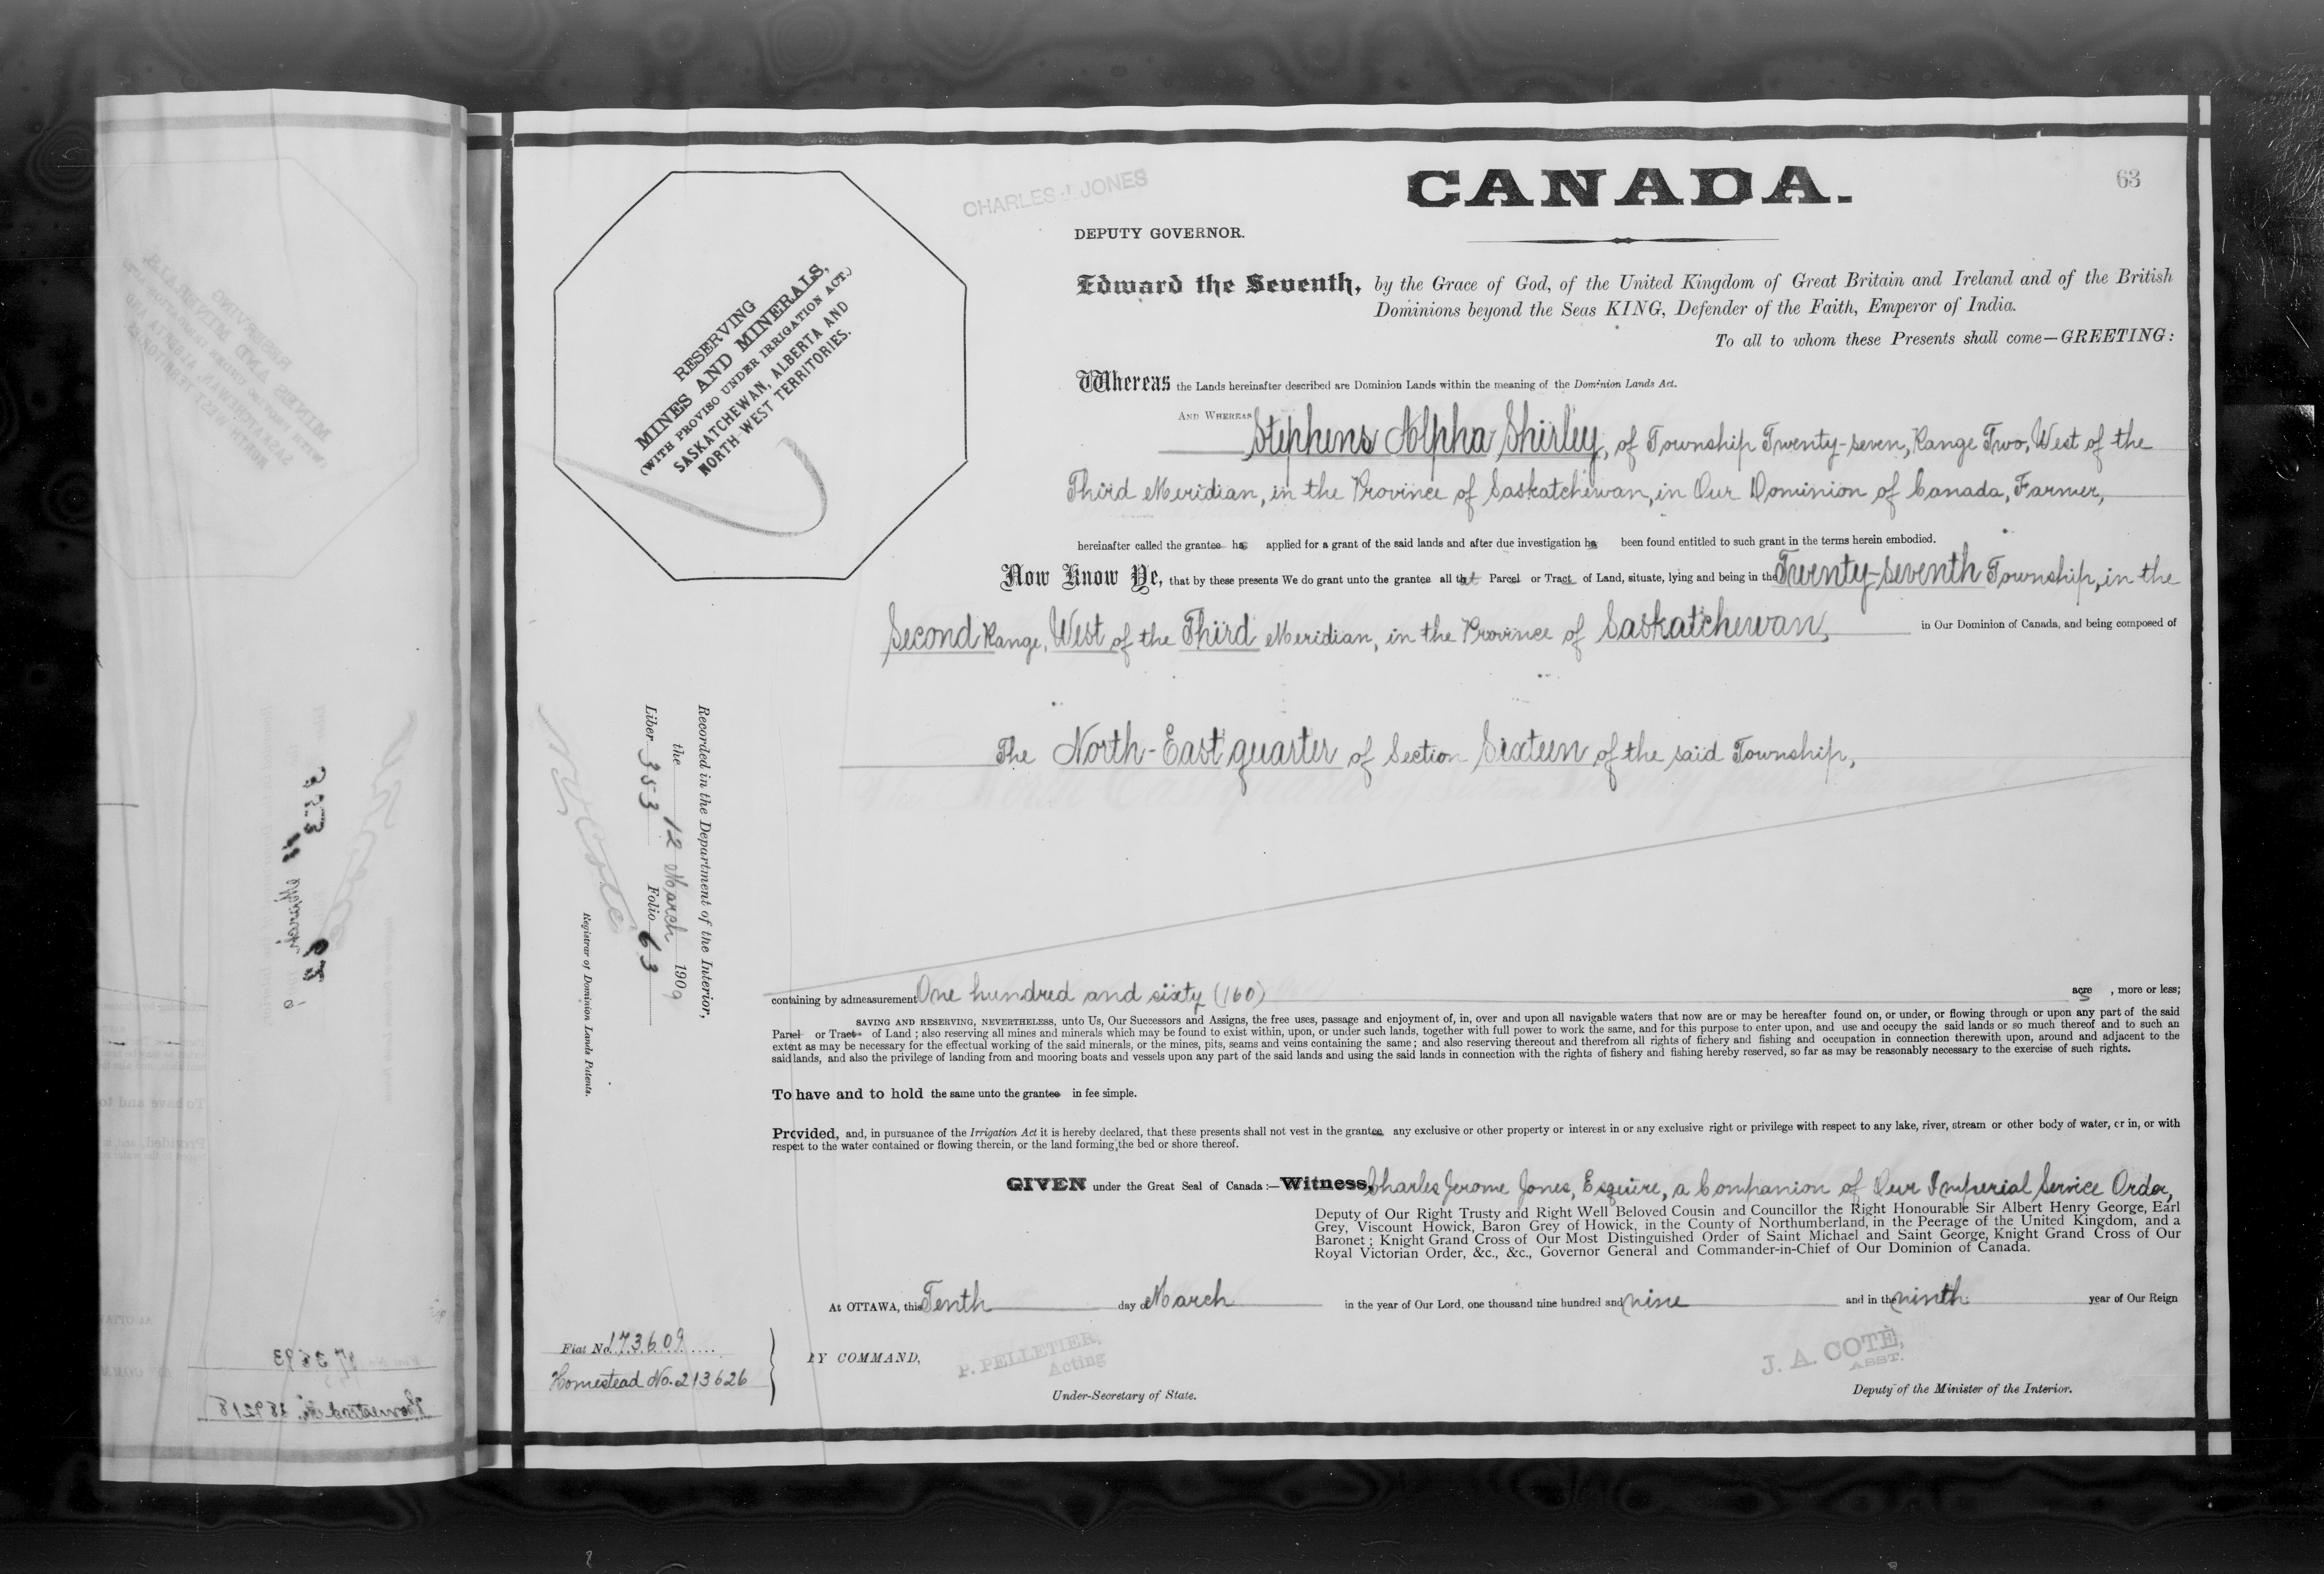 63
CHARLES J. JONES
CANADA.
DEPUTY GOVERNOR.
Edward the Seventh, by the Grace of God, of the United Kingdom of Great Britain and Ireland and of the British
Dominions beyond the Seas KING, Defender of the Faith, Emperor of India.
To all to whom these Presents shall come—GREETING:
RESERVING
MINES AND MINERALS,
(WITH PROVISO UNDER IRRIGATION ACT.)
SASKATCHEWAN, ALBERTA AND
NORTH-WEST TERRITORIES.
Whereas the Lands hereinafter described are Dominion Lands within the meaning of the Dominion Lands Act.
AND WHEREAS Stephens Alpha Shirley, of Township Twenty-seven, Range Two, West of the
Third Meridian, in the Province of Saskatchewan, in Our Dominion of Canada, Farmer,
hereinafter called the grantee has applied for a grant of the said lands and after due investigation has been found entitled to such grant in the terms herein embodied.
Now Know Ye, that by these presents We do grant unto the grantee all that Parcel or Tract of Land, situate, lying and being in the Twenty-seventh Township, in the
Second Range, West of the Third Meridian, in the Province of Saskatchewan, in Our Dominion of Canada, and being composed of
The North-East quarter of Section Sixteen of the said Township,
Recorded in the Department of the Interior,
the 12 March 1909
Liber 353 Folio 63
N. O. Coté
Registrar of Dominion Lands Patents.
containing by admeasurement One hundred and sixty (160) acres, more or less;
SAVING AND RESERVING, NEVERTHELESS, unto Us, Our Successors and Assigns, the free uses, passage and enjoyment of, in, over and upon all navigable waters that now are or may be hereafter found on, or under, or flowing through or upon any part of the said
Parcel or Tract of Land; also reserving all mines and minerals which may be found to exist within, upon, or under such lands, together with full power to work the same, and for this purpose to enter upon, and use and occupy the said lands or so much thereof and to such an
extent as may be necessary for the effectual working of the said minerals, or the mines, pits, seams and veins containing the same; and also reserving thereout and therefrom all rights of fishery and fishing and occupation in connection therewith upon, around and adjacent to the
said lands, and also the privilege of landing from and mooring boats and vessels upon any part of the said lands and using the said lands in connection with the rights of fishery and fishing hereby reserved, so far as may be reasonably necessary to the exercise of such rights.
To have and to hold the same unto the grantee in fee simple.
Provided, and, in pursuance of the Irrigation Act it is hereby declared, that these presents shall not vest in the grantee any exclusive or other property or interest in or any exclusive right or privilege with respect to any lake, river, stream or other body of water, or in, or with
respect to the water contained or flowing therein, or the land forming the bed or shore thereof.
GIVEN under the Great Seal of Canada:—Witness, Charles Jerome Jones, Esquire, a Companion of Our Imperial Service Order,
Deputy of Our Right Trusty and Right Well Beloved Cousin and Councillor the Right Honourable Sir Albert Henry George, Earl
Grey, Viscount Howick, Baron Grey of Howick, in the County of Northumberland, in the Peerage of the United Kingdom, and a
Baronet; Knight Grand Cross of Our Most Distinguished Order of Saint Michael and Saint George, Knight Grand Cross of Our
Royal Victorian Order, &c., &c., Governor General and Commander-in-Chief of Our Dominion of Canada.
At OTTAWA, this Tenth day of March in the year of Our Lord, one thousand nine hundred and nine and in the ninth year of Our Reign
Fiat No. 173609
Homestead No. 213626
BY COMMAND,
P. PELLETIER,
Acting
Under-Secretary of State.
J. A. COTÉ,
ASST.
Deputy of the Minister of the Interior.